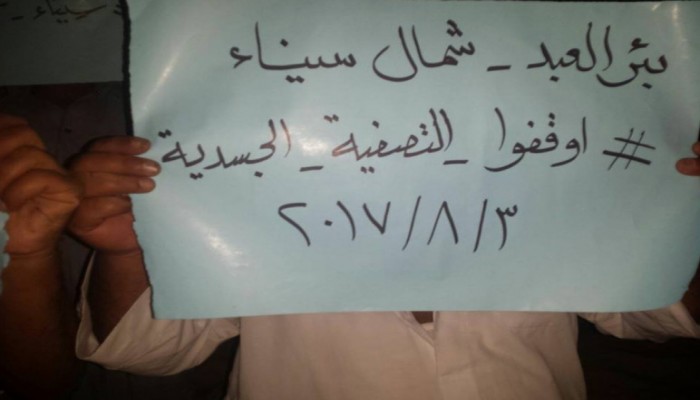 سيناء -
بئر العبد - شمال سيناء
# اوقفوا - التصفية - الجسدية
٢٠١٧/٨/٣